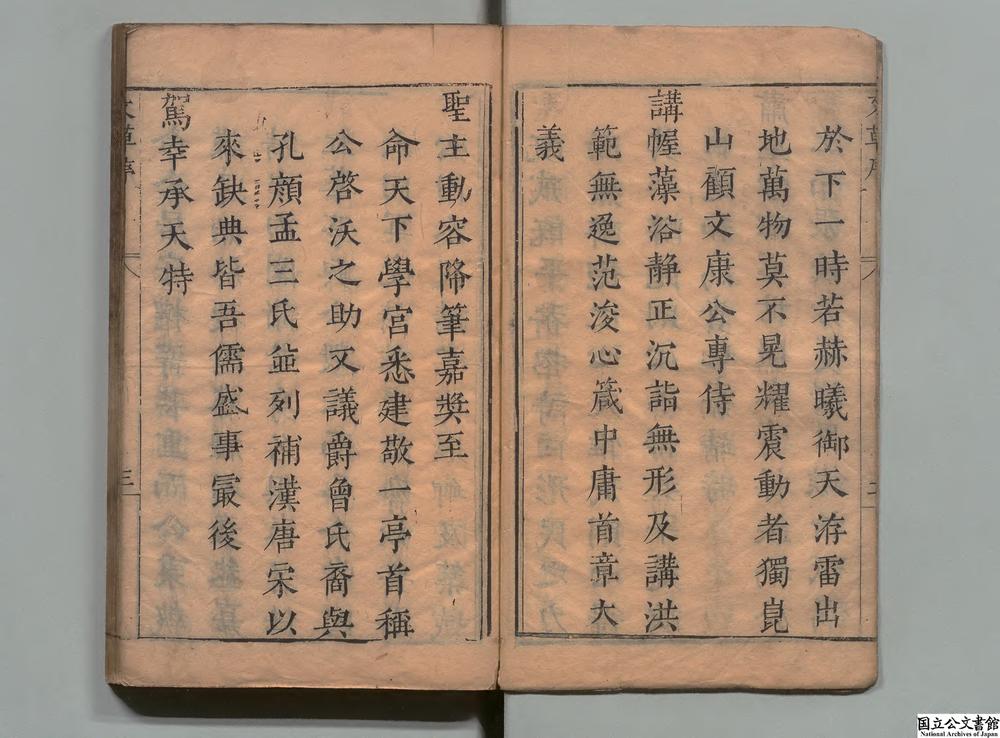 於下一時若赫曦御天洊雷出
地萬物莫不晃耀震動者獨崑
山顧文康公專侍
講幄藻浴靜正沉詣無形及講洪
範無逸范浚心箴中庸首章大
義
聖主動容降筆嘉奬至
命天下學宮悉建敬一亭首稱
公啓沃之助又議爵曾氏裔與
孔顏孟三氏並列補漢唐宋以
來缺典皆吾儒盛事最後
駕幸承天特
三
国立公文書館
National Archives of Japan